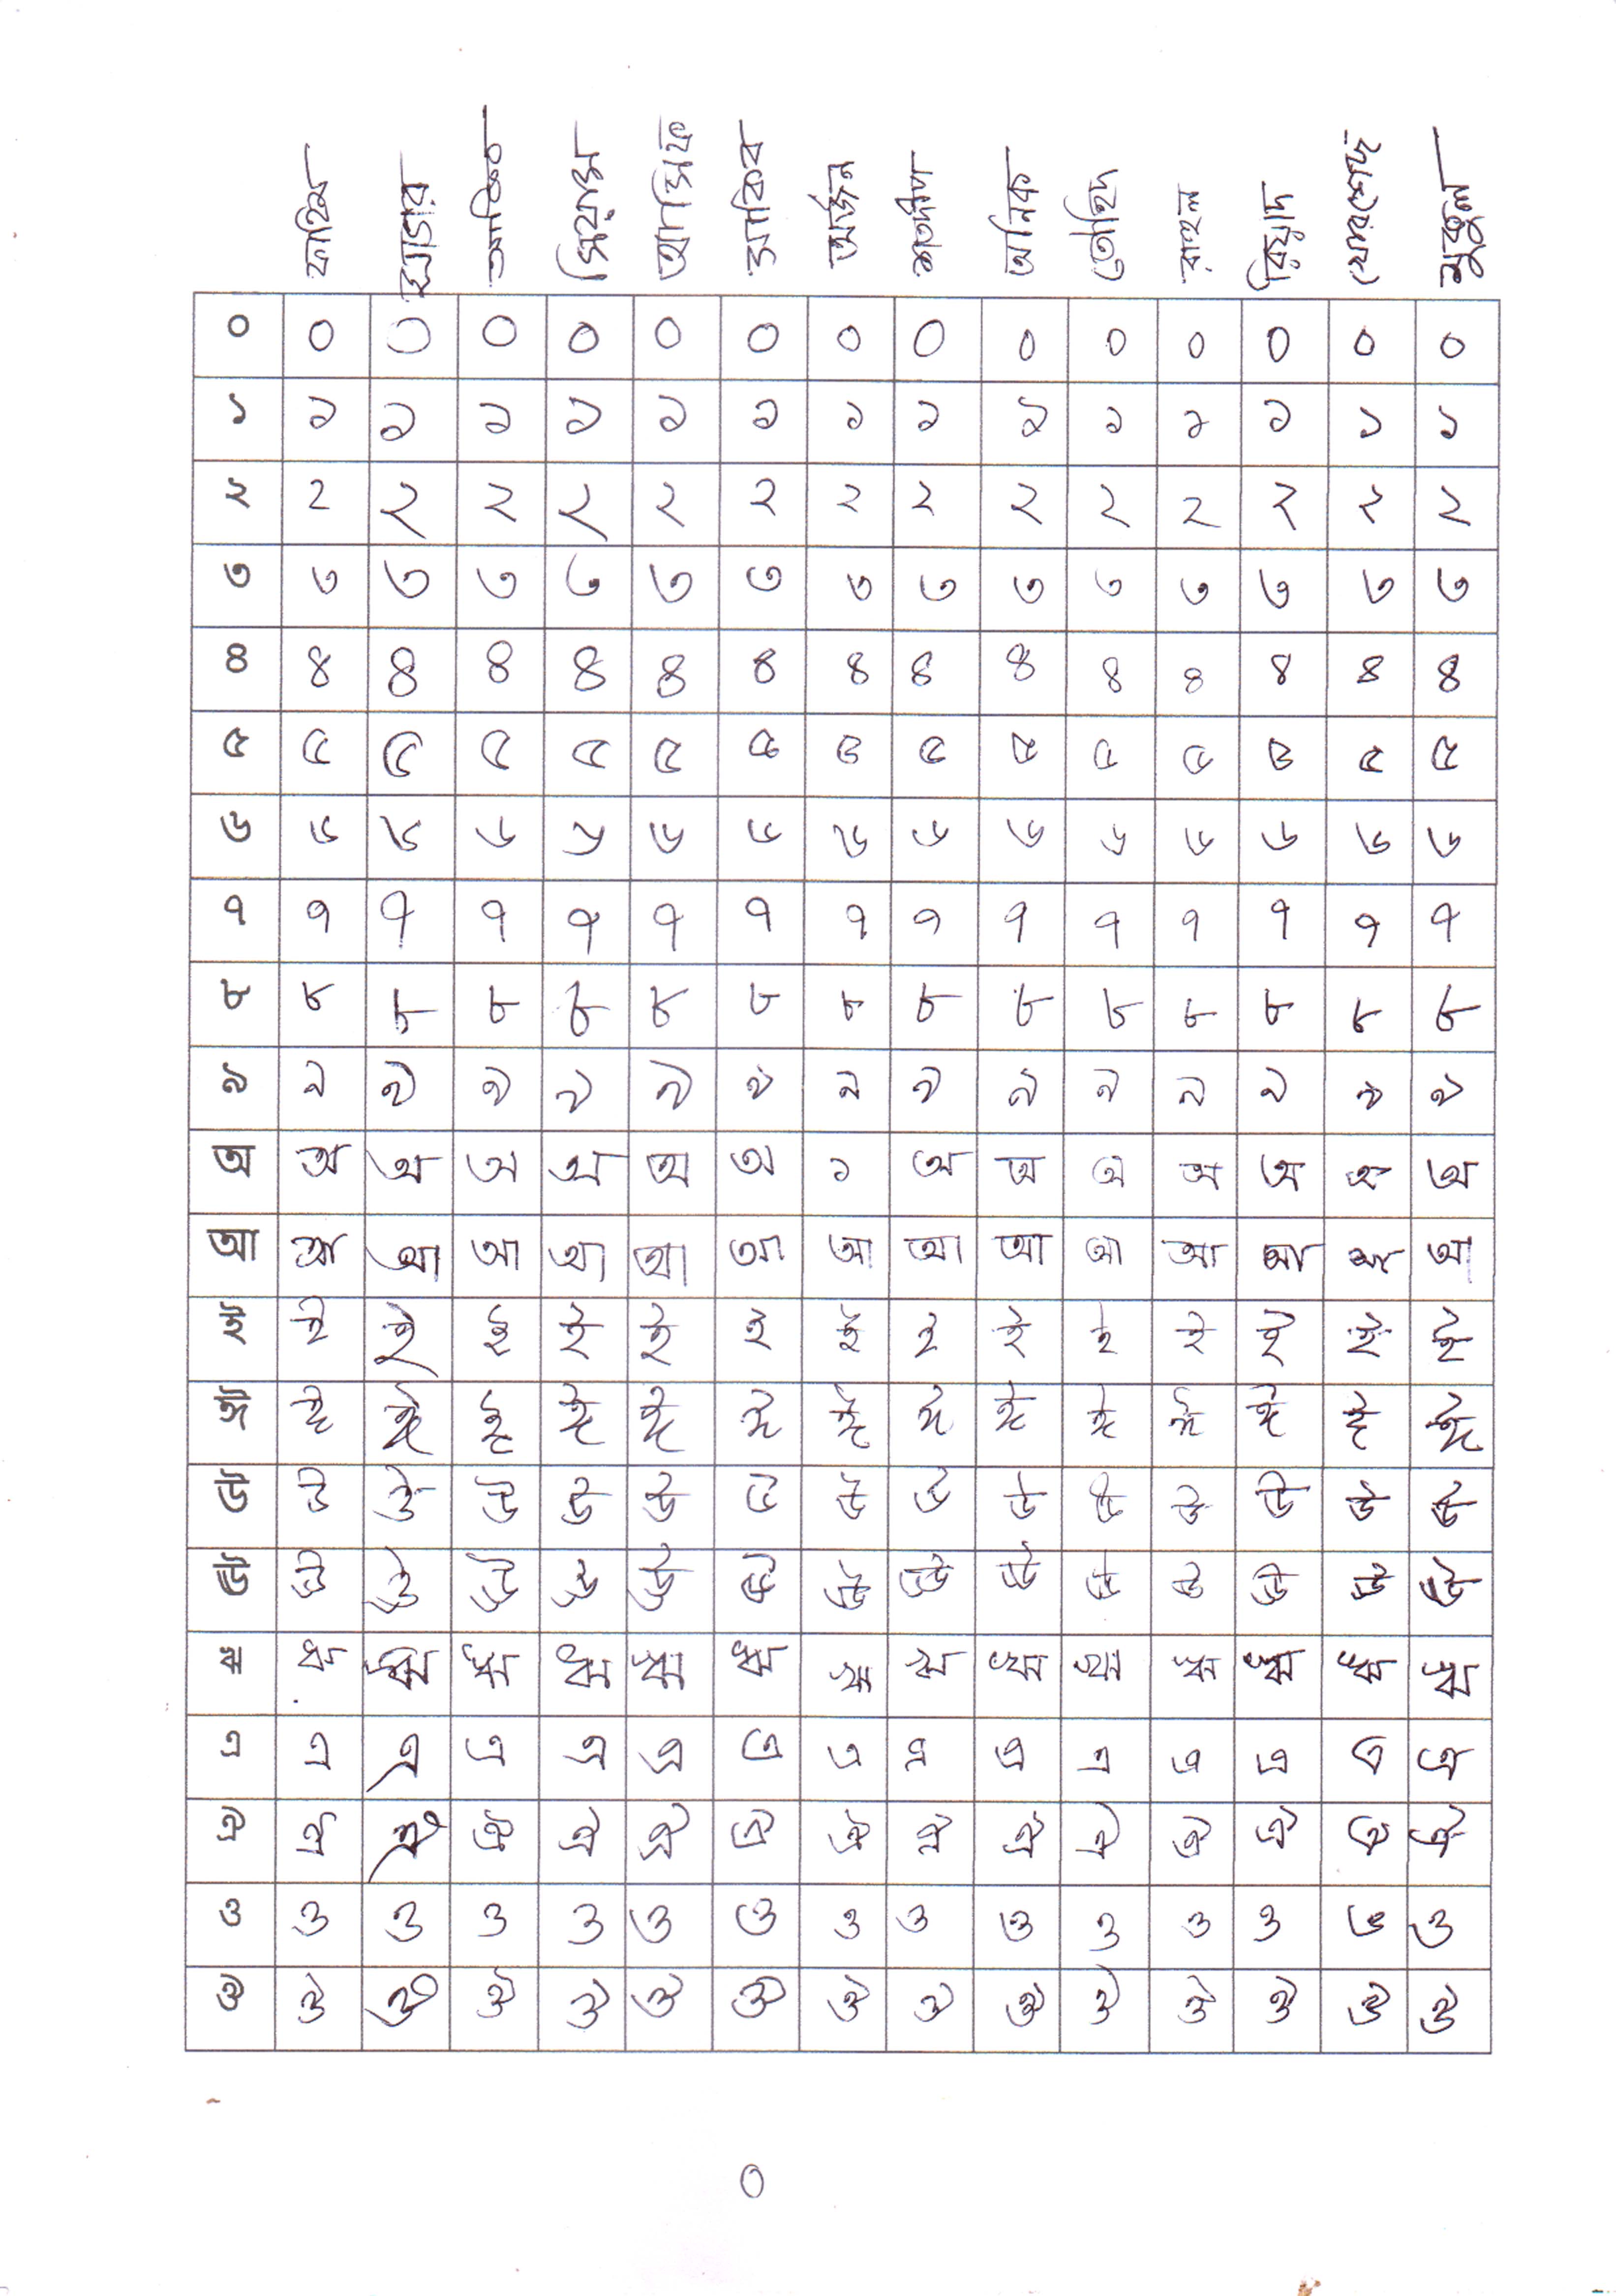 ফাহিম সিয়াম আসিফ সাকিব অর্জন অনিক তৌহিদ রাহুল রিয়াদ মুকুল
০ ০ ০ ০ ০ ০ ০ ০ ০ ০ ০ ০ ০ ০ ০
১ ১ ১ ১ ১ ১ ১ ১ ১ ১ ১ ১ ১ ১ ১
২ ২ ২ ২ ২ ২ ২ ২ ২ ২ ২ ২ ২ ২ ২
৩ ৩ ৩ ৩ ৩ ৩ ৩ ৩ ৩ ৩ ৩ ৩ ৩ ৩ ৩
৪ ৪ ৪ ৪ ৪ ৪ ৪ ৪ ৪ ৪ ৪ ৪ ৪ ৪ ৪
৫ ৫ ৫ ৫ ৫ ৫ ৫ ৫ ৫ ৫ ৫ ৫ ৫ ৫ ৫
৬ ৬ ৬ ৬ ৬ ৬ ৬ ৬ ৬ ৬ ৬ ৬ ৬ ৬ ৬
৭ ৭ ৭ ৭ ৭ ৭ ৭ ৭ ৭ ৭ ৭ ৭ ৭ ৭ ৭
৮ ৮ ৮ ৮ ৮ ৮ ৮ ৮ ৮ ৮ ৮ ৮ ৮ ৮ ৮
৯ ৯ ৯ ৯ ৯ ৯ ৯ ৯ ৯ ৯ ৯ ৯ ৯ ৯ ৯
অ অ অ অ অ অ অ ১ অ অ অ অ অ অ অ
আ আ আ আ আ আ আ আ আ আ আ আ আ আ আ
ই ই ই ই ই ই ই ই ই ই ই ই ই ই ই
ঈ ঈ ঈ ঈ ঈ ঈ ঈ ঈ ঈ ঈ ঈ ঈ ঈ ঈ ঈ
উ উ উ উ উ উ উ উ উ উ উ উ উ উ উ
ঊ ঊ ঊ ঊ ঊ ঊ ঊ ঊ ঊ ঊ ঊ ঊ ঊ ঊ ঊ
ঋ ঋ ঋ ঋ ঋ ঋ ঋ ঋ ঋ ঋ ঋ ঋ ঋ ঋ ঋ
এ এ এ এ এ এ এ এ এ এ এ এ এ এ এ
ঐ ঐ ঐ ঐ ঐ ঐ ঐ ঐ ঐ ঐ ঐ ঐ ঐ ঐ ঐ
ও ও ও ও ও ও ও ও ও ও ও ও ও ও ও
ঔ ঔ ঔ ঔ ঔ ঔ ঔ ঔ ঔ ঔ ঔ ঔ ঔ ঔ ঔ
0